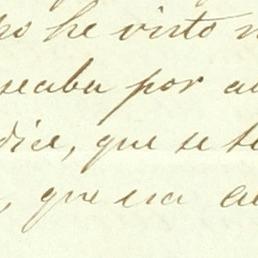 he visto
seaba por
dice, que se
, que era